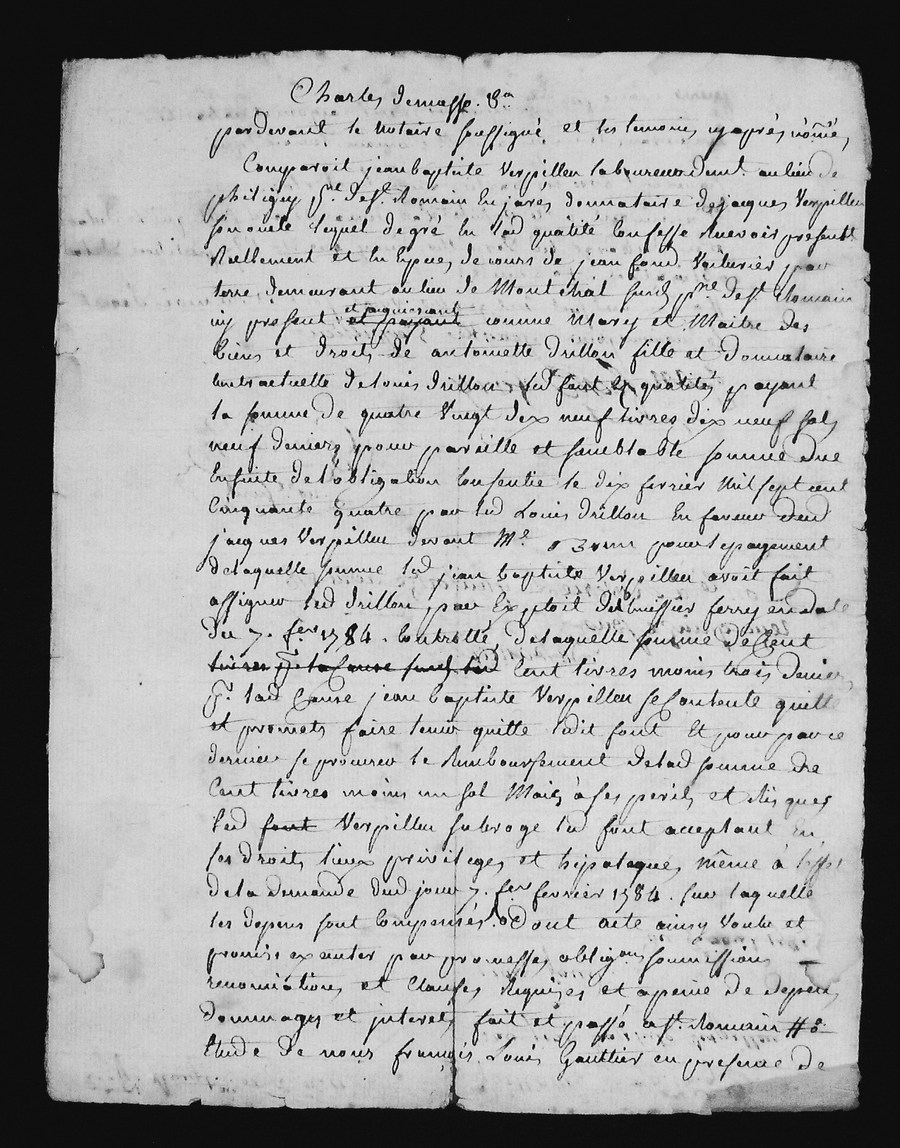 Charles demasso. 8.a
pardevant le Notaire soussigné et les temoins cy aprés nõmés
Comparoit jean baptiste Verpilleu laboureur demt. au lieu de
philigny psse. de st. Romain En jarés donnataire de jacques Verpilleu
son oncle lequel de gré En lad qualité Confesse Recevoir presentt.
Réellement et En Especes de cours de jean font Voiturier par
terre demeurant au lieu de Montéchal susd psse. de st. Romain
icy present et acquiessant et payant comme Mary et Maitre des
biens et droits de antoinette drillon fille et donnataire
Contractuelle de louis drillon led font Es qualités payant
la somme de quatre Vingt dix neuf livres dix neuf sols
neuf deniers pour pareille et semblable somme due
Ensuite de lobligation Consentie le dix fevrier Mil sept cent
Cinquante quatre par led Louis drillon En faveur dud
jacques Verpilleu devant Me. pour le payement
de laquelle somme led jean baptiste Verpilleu avoit fait
assigner led drillon par Exploit de lhuissier ferry en date
du 7. fer. 1784. Controllé, de laquelle somme de Cent
livres pr. la Cause susd led Cent livres moins trois deniers
pr. lad Cause jean baptiste Verpilleu se Contente quitte
et promets faire tenir quitte ledit font Et pour par ce
dernier se procurer le Remboursement de lad somme de
Cent livres moins un sol Mais à ses perils et Risques
led font Verpilleu subroge led font acceptant En
ses droits lieux privileges et hipoteques même à leffet
de la demande dud jour 7. fer fevrier 1784. sur laquelle
les depens sont Compensés. dont acte ainsy Voulu et
promis executer par promesses obligaons soumissions
renonciations et Clauses Requises et a peine de depens
dommages et jnterets fait et passé a st. Romain
Etude de nous françois Louis Gaultier en presence de